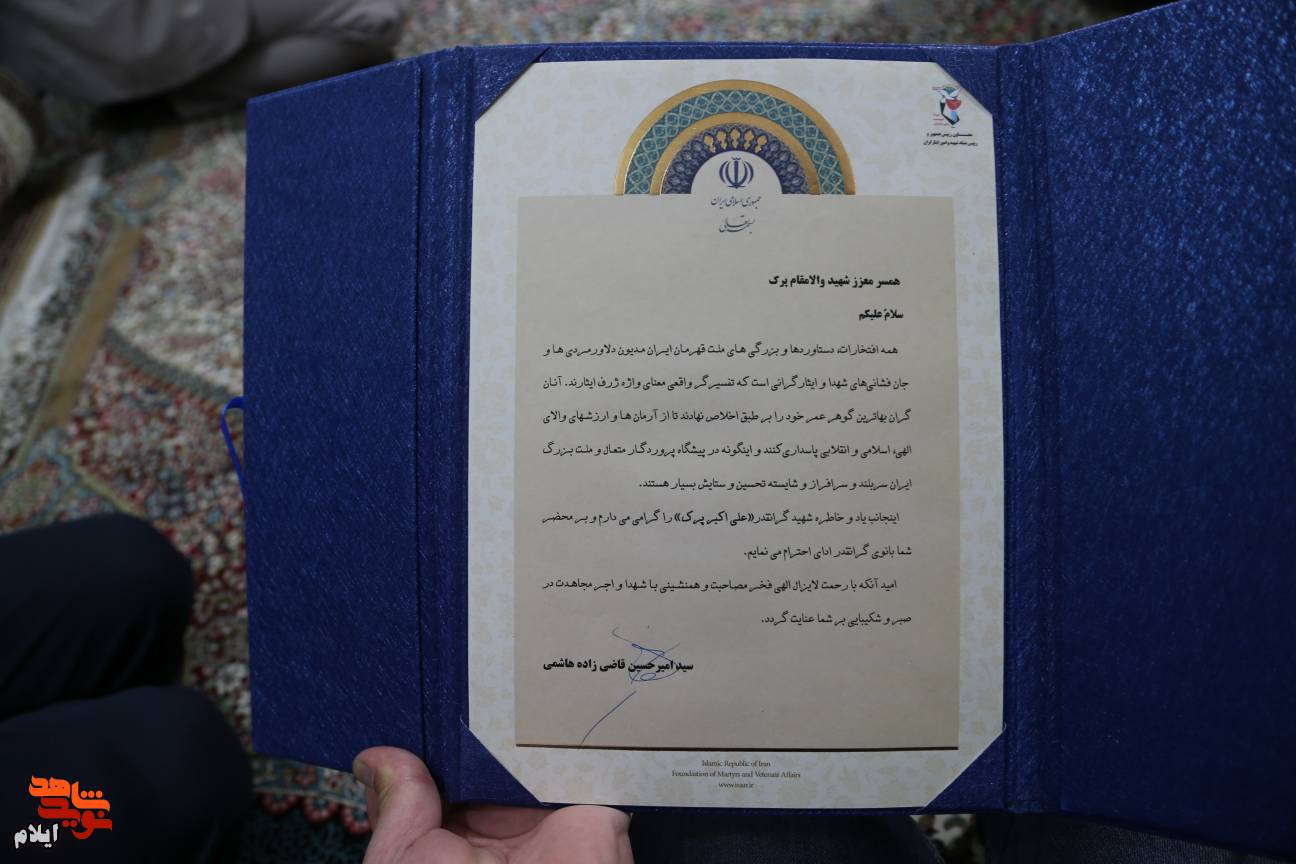 معاون رییس جمهور و
رییس بنیاد شهید و امور ایثارگران
جمهوری اسلامی ایران
بسمه تعالی
همسر معزز شهید والامقام پرک
سلامٌ علیکم
همه افتخارات، دستاوردها و بزرگی های ملت قهرمان ایران مدیون دلاورمردی ها و
جان فشانی‌های شهدا و ایثارگرانی است که تفسیرگر واقعی معنای واژه ژرف ایثارند. آنان
گران بهاترین گوهر عمر خود را بر طبق اخلاص نهادند تا از آرمان ها و ارزشهای والای
الهی، اسلامی و انقلابی پاسداری کنند و اینگونه در پیشگاه پروردگار متعال و ملت بزرگ
ایران سربلند و سرافراز و شایسته تحسین و ستایش بسیار هستند.
اینجانب یاد و خاطره شهید گرانقدر «علی اکبر پرک» را گرامی می دارم و بر محضر
شما بانوی گرانقدر ادای احترام می نمایم.
امید آنکه با رحمت لایزال الهی فخر مصاحبت و همنشینی با شهدا و اجر مجاهدت در
صبر و شکیبایی بر شما عنایت گردد.
سید امیرحسین قاضی زاده هاشمی
Islamic Republic of Iran
Foundation of Martyrs and Veterans Affairs
www.isaar.ir
نوید شاهد
ایلام